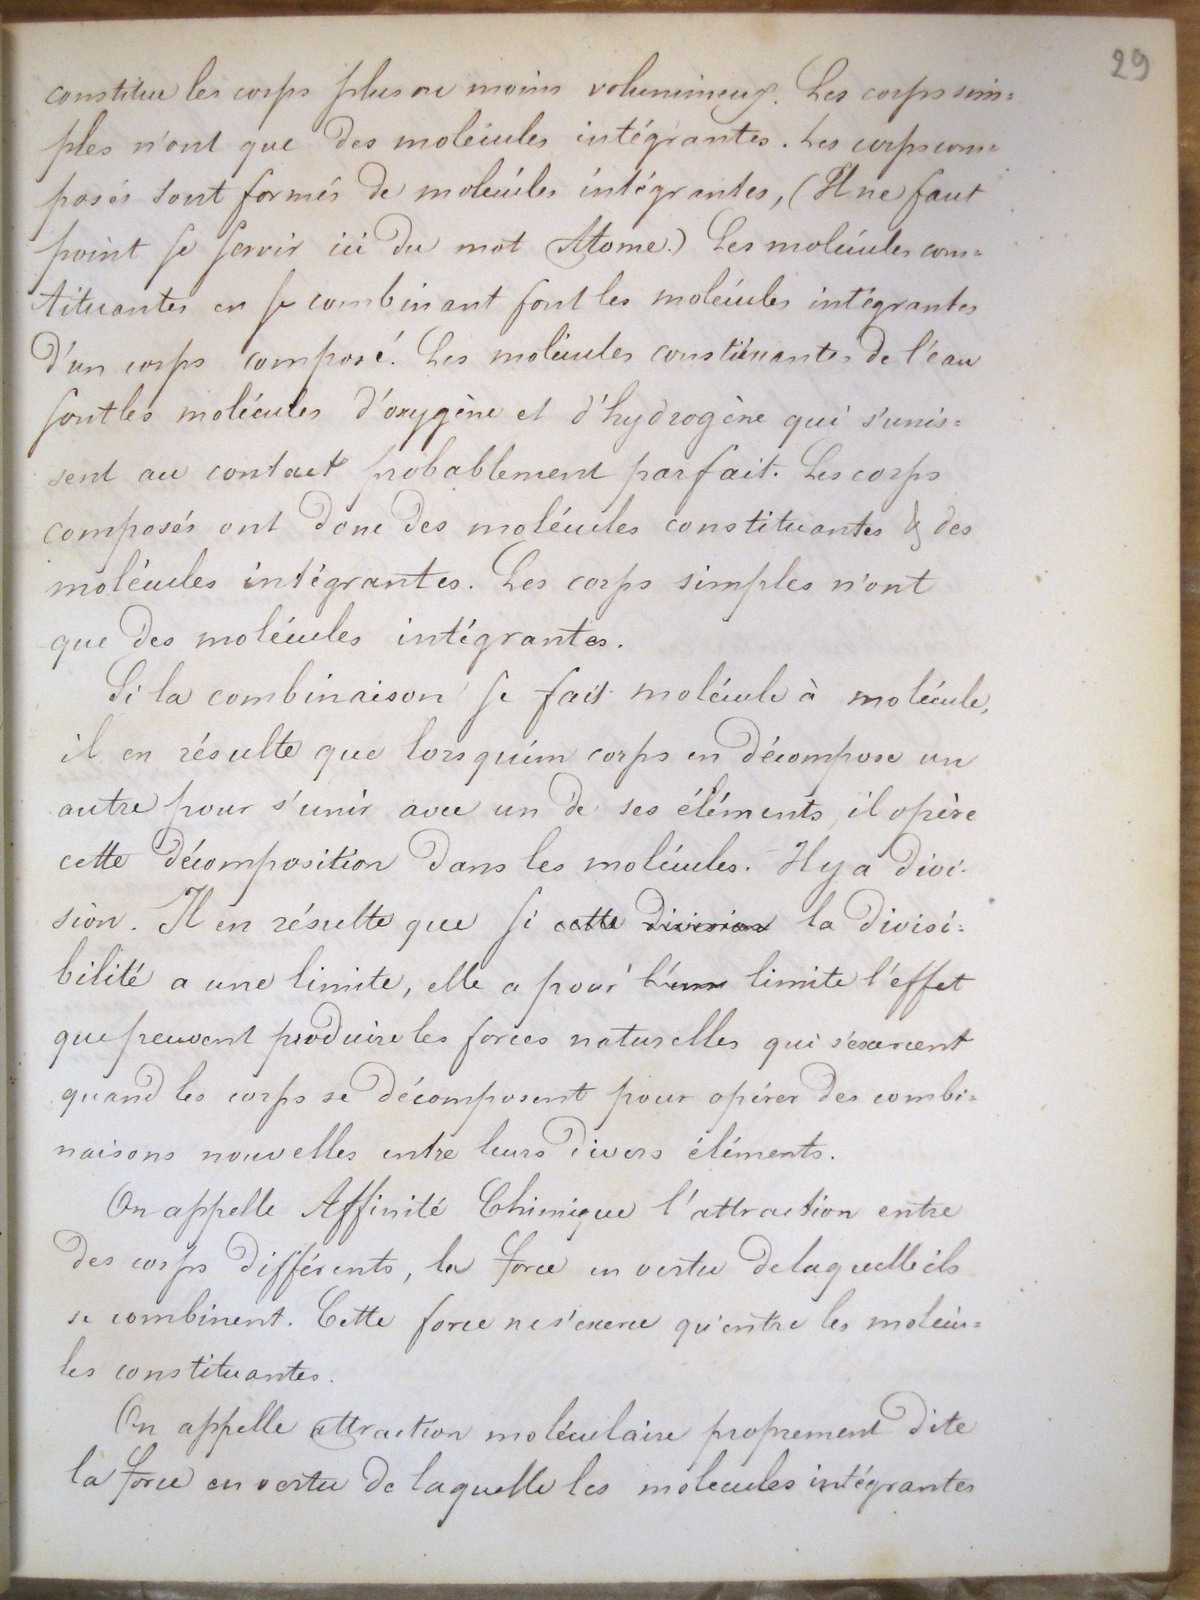 29
constitue les corps plus ou moins volumineux. Les corps sim=
ples n'ont que des molécules intégrantes. Les corps com=
posés sont formés de molécules intégrantes, (Il ne faut
point se servir ici du mot Atome.) Les molécules cons=
tituantes en se combinant font les molécules intégrantes
d'un corps composé. Les molécules constituantes de l'eau
sont les molécules d'oxygène et d'hydrogène qui s'unis=
sent au contact probablement parfait. Les corps
composés ont donc des molécules constituantes & des
molécules intégrantes. Les corps simples n'ont
que des molécules intégrantes.
Si la combinaison se fait molécule à molécule,
il en résulte que lorsqu'un corps en décompose un
autre pour s'unir avec un de ses éléments, il opère
cette décomposition dans les molécules. Il y a divi-
sion. Il en résulte que si cette division la divisi=
bilité a une limite, elle a pour limite l'effet
que peuvent produire les forces naturelles qui s'exercent
quand les corps se décomposent pour opérer des combi=
naisons nouvelles entre leurs divers éléments.
On appelle Affinité Chimique l'attraction entre
des corps différents, la force en vertu de laquelle ils
se combinent. Cette force ne s'exerce qu'entre les molécu=
les constituantes.
On appelle attraction moléculaire proprement dite
la force en vertu de laquelle les molécules intégrantes